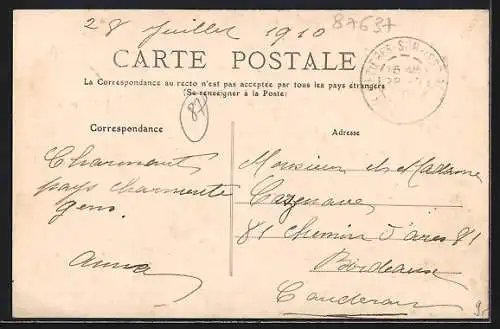 28 Juillet 1910
87637
CARTE POSTALE
La Correspondance au recto n'est pas acceptée par tous les pays étrangers
(Se renseigner à la Poste)
87
Correspondance
Adresse
Charmant
pays charmente
gens.
Anna
Monsieur et Madame
Cazenave
81 chemin d'ares 81
Bordeaux
Cauderan